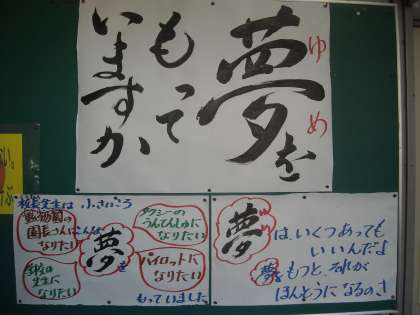 夢を
ゆめ
もって
いますか
校長先生は 小さいころ
動物園の
園長さんに
なりたい
タクシーの
うんてんしゅに
なりたい
学校の
先生に
なりたい
パイロットに
なりたい
夢を
もっていました
夢は、いくつあっても
いいんだよ
夢をもつと、それが
ほんとうになるのさ